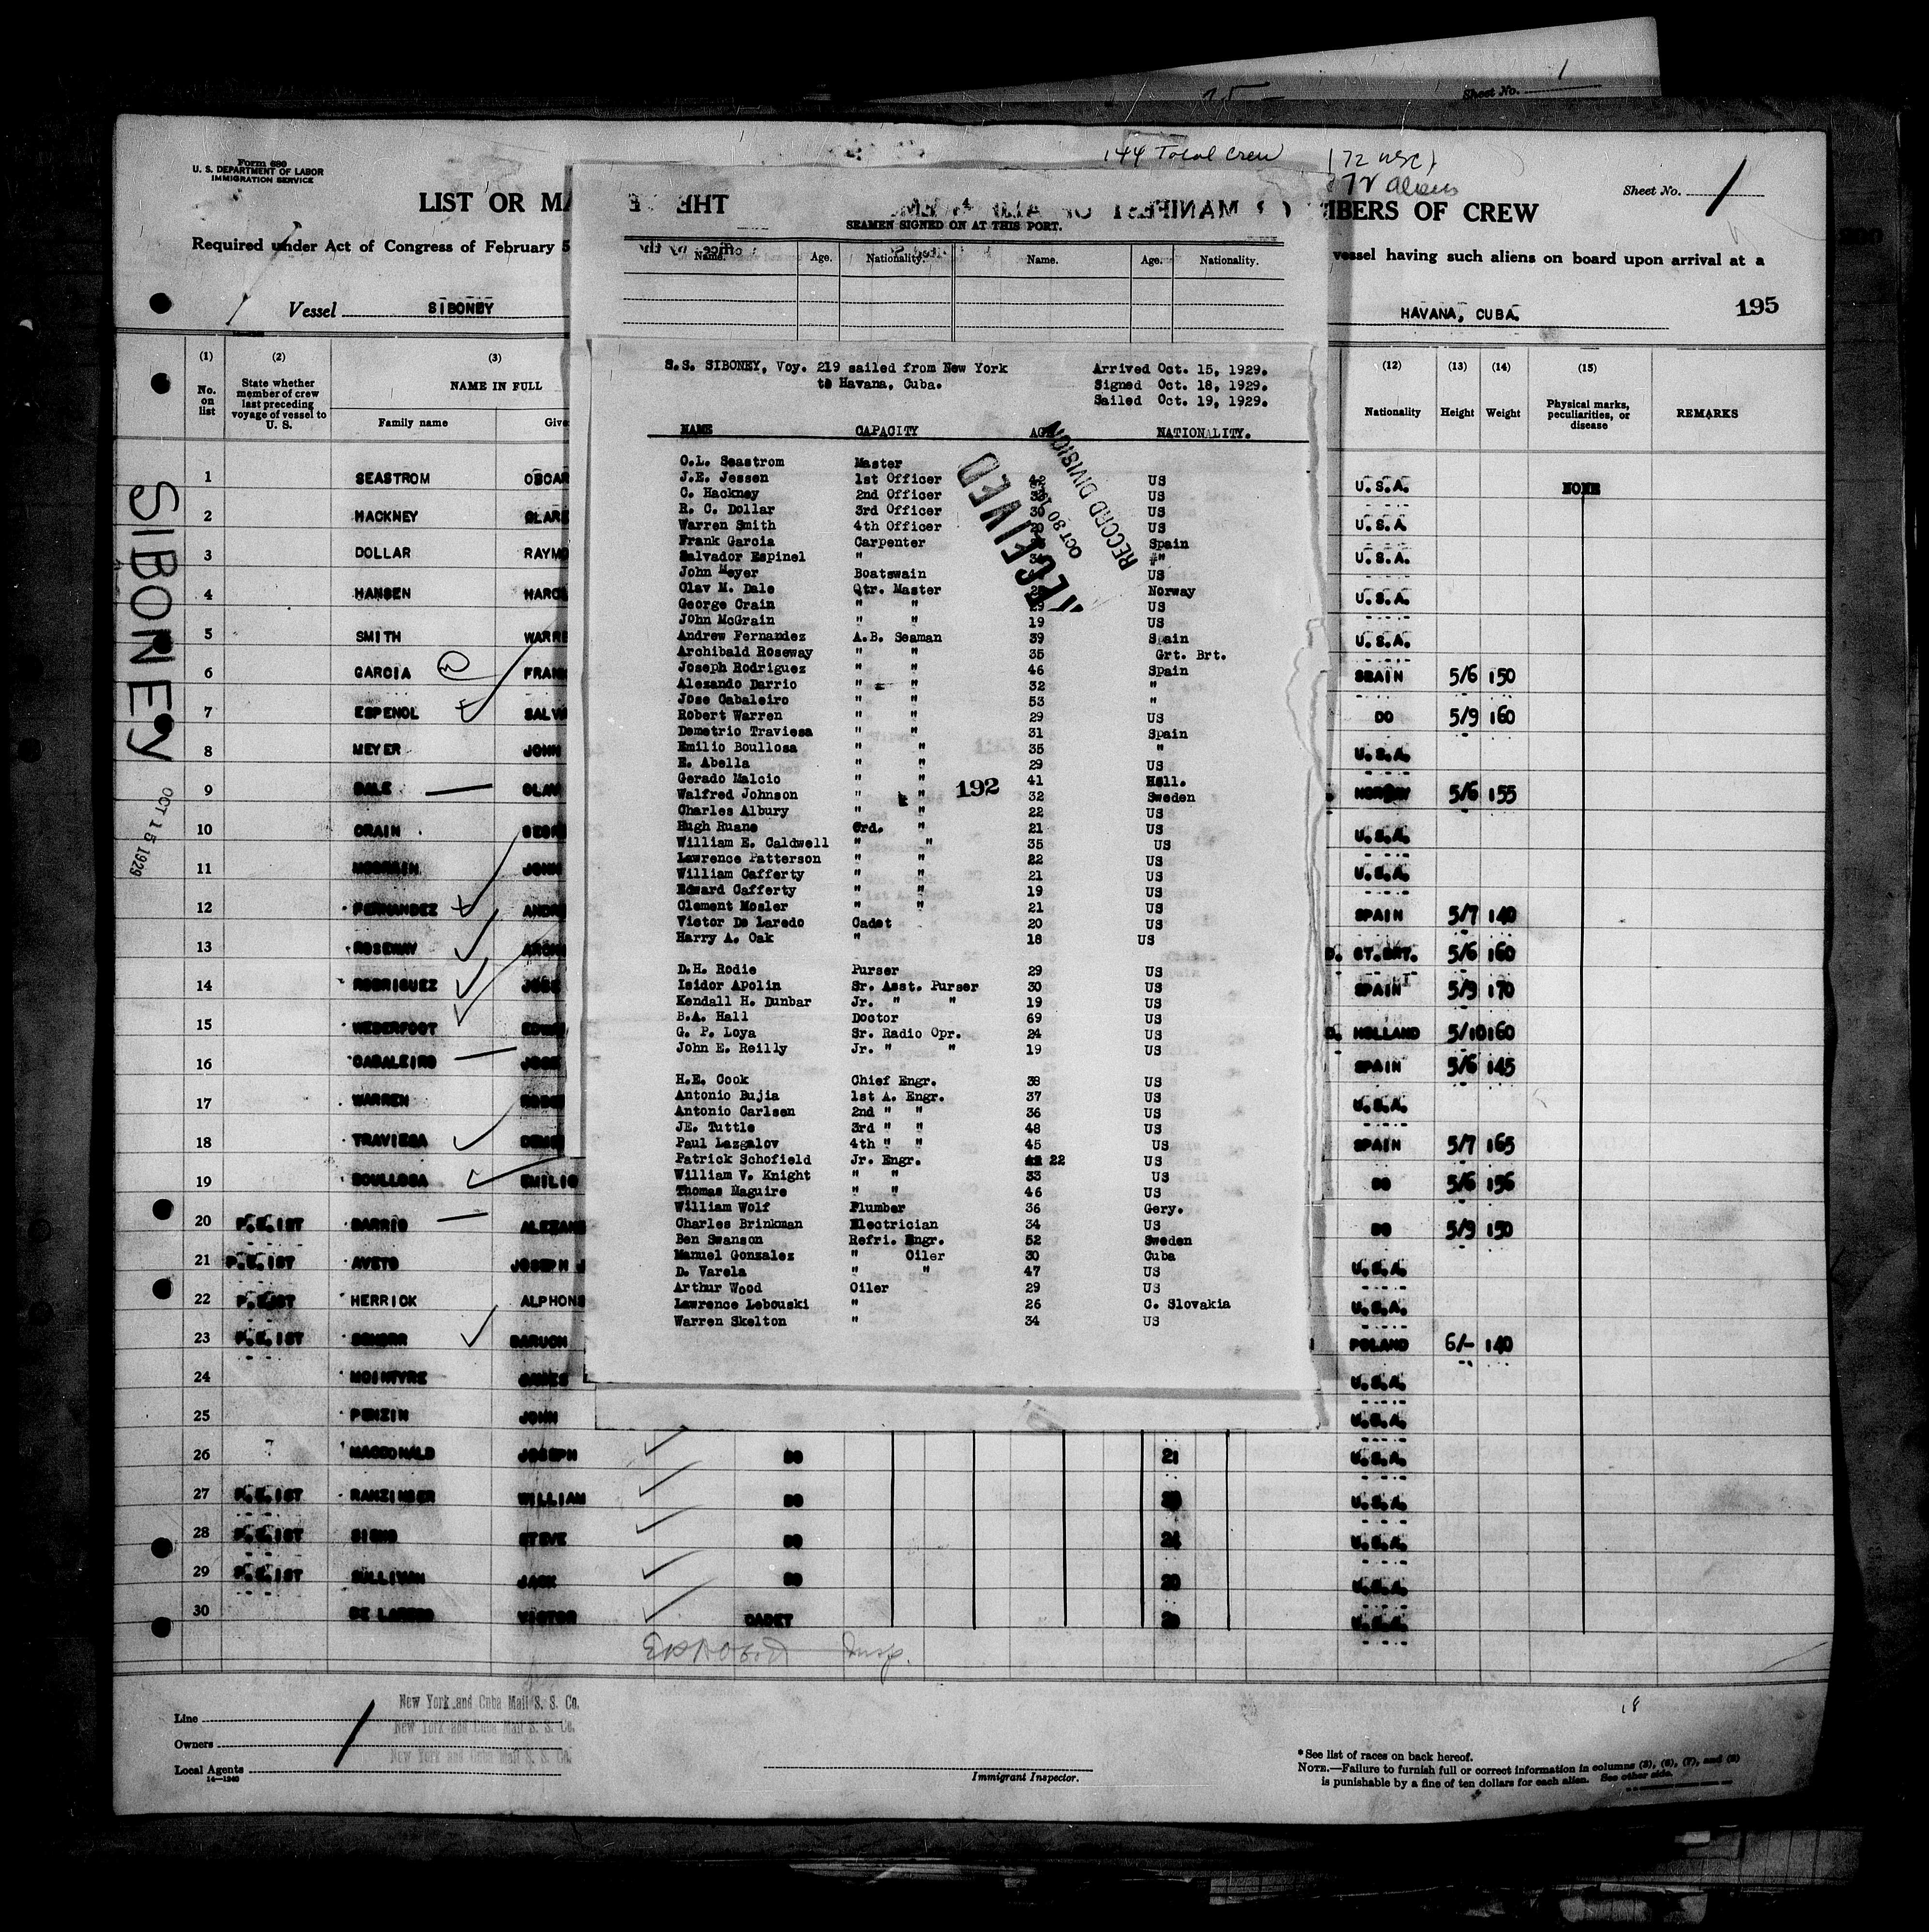 Sheet No. 1
Form 689
U. S. DEPARTMENT OF LABOR
IMMIGRATION SERVICE
144 Total Crew (72 USC)
72 aliens
Sheet No. 1
LIST OR MA
MBERS OF CREW
Required under Act of Congress of February 5
vessel having such aliens on board upon arrival at a
Vessel SIBONEY
HAVANA, CUBA.
195
SEAMEN SIGNED ON AT THIS PORT.
Name. Age. Nationality. Name. Age. Nationality.
S.S. SIBONEY, Voy. 219 sailed from New York
to Havana, Cuba.
Arrived Oct. 15, 1929.
Signed Oct. 18, 1929.
Sailed Oct. 19, 1929.
NAME CAPACITY AGE NATIONALITY.
RECEIVED
OCT 30
RECORD DIVISION
O.L. Seastrom Master
J.E. Jessen 1st Officer 42 US
C. Hackney 2nd Officer US
R. C. Dollar 3rd Officer 30 US
Warren Smith 4th Officer US
Frank Garcia Carpenter Spain
Salvador Espinel " "
John Meyer Boatswain US
Olav M. Dale Qtr. Master Norway
George Crain " " 29 US
John McGrain " " 19 US
Andrew Fernandez A.B. Seaman 39 Spain
Archibald Roseway " " 35 Grt. Brt.
Joseph Rodriguez " " 46 Spain
Alezando Darrio " " 32 "
Jose Cabaleiro " " 53 "
Robert Warren " " 29 US
Demetrio Traviesa " " 31 Spain
Emilio Boullosa " " 35 "
E. Abella " " 29 US
Gerado Malcio " " 41 Holl.
Walfred Johnson " " 32 Sweden
192
Charles Albury " " 22 US
Hugh Ruane Ord. " 21 US
William E. Caldwell " " 35 US
Lawrence Patterson " " 22 US
William Cafferty " " 21 US
Edward Cafferty " " 19 US
Clement Mosler " " 21 US
Victor De Laredo Cadet 20 US
Harry A. Oak " 18 US
D.H. Rodie Purser 29 US
Isidor Apolin Sr. Asst. Purser 30 US
Kendall H. Dunbar Jr. " " 19 US
B.A. Hall Doctor 69 US
G. P. Loya Sr. Radio Opr. 24 US
John E. Reilly Jr. " " 19 US
H.E. Cook Chief Engr. 38 US
Antonio Bujia 1st A. Engr. 37 US
Antonio Carlsen 2nd " " 36 US
JE. Tuttle 3rd " " 48 US
Paul Lazgalov 4th " " 45 US
Patrick Schofield Jr. Engr. 22 US
William V. Knight " " 33 US
Thomas Maguire " " 46 US
William Wolf Plumber 36 Gery.
Charles Brinkman Electrician 34 US
Ben Swanson Refri. Engr. 52 Sweden
Manuel Gonzalez " Oiler 30 Cuba
D. Varela " " 47 US
Arthur Wood Oiler 29 US
Lawrence Lebouski " 26 C. Slovakia
Warren Skelton " 34 US
(1) (2) (3) (12) (13) (14) (15)
No. on list
State whether member of crew last preceding voyage of vessel to U. S.
NAME IN FULL
Family name Give
Nationality Height Weight
Physical marks, peculiarities, or disease
REMARKS
SIBONEY
OCT 15 1929
1 SEASTROM OSCAR U.S.A. NONE
2 HACKNEY CLARE U.S.A.
3 DOLLAR RAYMO U.S.A.
4 HANSEN HAROL U.S.A.
5 SMITH WARRE U.S.A.
6 GARCIA FRAN SPAIN 5/6 150
7 ESPENOL SALV DO 5/9 160
8 MEYER JOHN U.S.A.
9 DALE OLAV NORWAY 5/6 155
10 CRAIN U.S.A.
11 MCGRAIN JOHN U.S.A.
12 FERNANDEZ ANDR SPAIN 5/7 140
13 ROSEWAY ARCH GT.BRT. 5/6 160
14 RODRIGUEZ JOSE SPAIN 5/9 170
15 WEDERFOOT EDW HOLLAND 5/10 160
16 CABALEIRO JOSE SPAIN 5/6 145
17 WARREN U.S.A.
18 TRAVIESA DEME SPAIN 5/7 165
19 BOULLOSA EMILIO DO 5/6 156
20 P.E. IST DARRIO ALEZAN DO 5/9 150
21 P.E. IST AVETO JOSEPH J U.S.A.
22 P.E. IST HERRICK ALPHONS U.S.A.
23 P.E. IST SCHORR BARUCH POLAND 6/- 140
24 MCINTYRE JAMES U.S.A.
25 PENZIN JOHN U.S.A.
26 MACDONALD JOSEPH DO 21 U.S.A.
27 P.E. IST RANZINGER WILLIAM DO U.S.A.
28 P.E. IST STEVE DO 24 U.S.A.
29 P.E. IST SULLIVAN JACK DO 20 U.S.A.
30 DE LAREDO VICTOR CADET 20 U.S.A.
Line New York and Cuba Mail S. S. Co.
Owners New York and Cuba Mail S. S. Co.
Local Agents New York and Cuba Mail S. S. Co.
14—1240
Immigrant Inspector.
18
*See list of races on back hereof.
NOTE.—Failure to furnish full or correct information in columns (3), (6), (7), and (8)
is punishable by a fine of ten dollars for each alien. See other side.